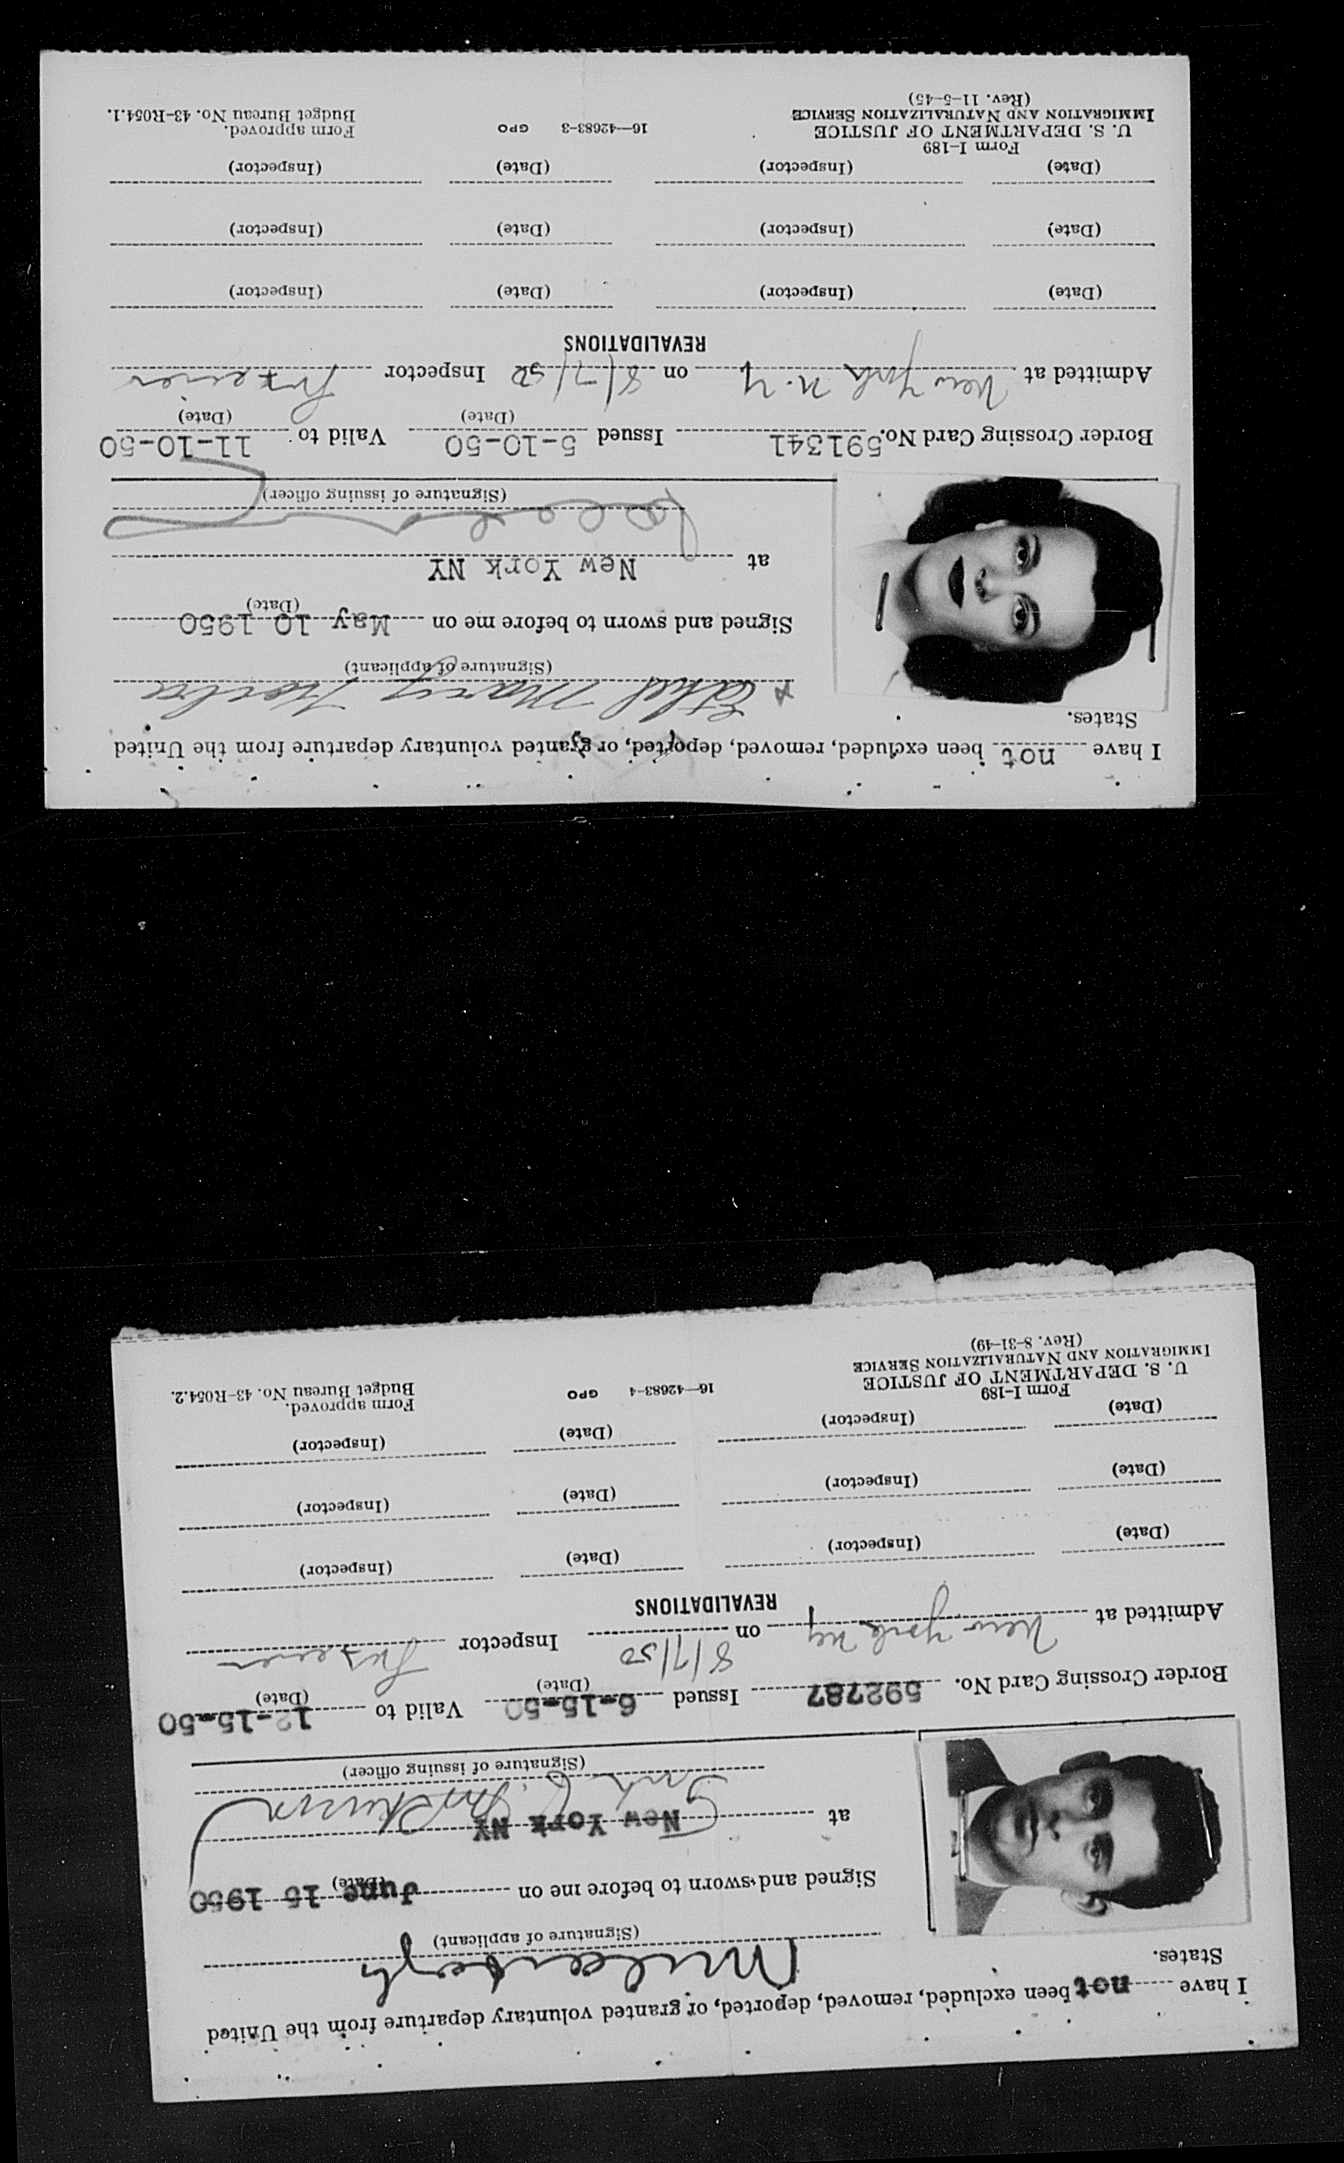 I have not been excluded, removed, deported, or granted voluntary departure from the United
States.
x Ethel Mary
(Signature of applicant)
Signed and sworn to before me on May 10 1950
(Date)
at New York NY
(Signature of issuing officer)
Border Crossing Card No. 591341 Issued 5-10-50 Valid to 11-10-50
(Date) (Date)
Admitted at New York N.Y on 8/7/50 Inspector
REVALIDATIONS
(Date) (Inspector) (Date) (Inspector)
(Date) (Inspector) (Date) (Inspector)
(Date) (Inspector) (Date) (Inspector)
Form I-189
U. S. DEPARTMENT OF JUSTICE
IMMIGRATION AND NATURALIZATION SERVICE
(Rev. 11-5-45)
16—42683-3 GPO
Form approved.
Budget Bureau No. 43-R054.1.
I have not been excluded, removed, deported, or granted voluntary departure from the United
States.
(Signature of applicant)
Signed and sworn to before me on June 15 1950
(Date)
at New York NY
(Signature of issuing officer)
Border Crossing Card No. 592787 Issued 6-15-50 Valid to 12-15-50
(Date) (Date)
Admitted at New York NY on 8/7/50 Inspector
REVALIDATIONS
(Date) (Inspector) (Date) (Inspector)
(Date) (Inspector) (Date) (Inspector)
(Date) (Inspector) (Date) (Inspector)
Form I-189
U. S. DEPARTMENT OF JUSTICE
IMMIGRATION AND NATURALIZATION SERVICE
(Rev. 8-31-49)
16—42683-4 GPO
Form approved.
Budget Bureau No. 43-R054.2.